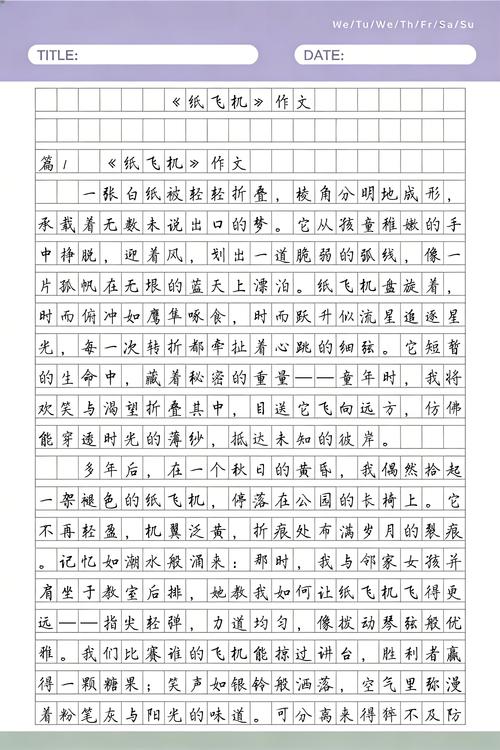 We/Tu/We/Th/Fr/Sa/Su
TITLE: DATE:
《纸飞机》作文
篇1 《纸飞机》作文
一张白纸被轻轻折叠，棱角分明地成形，
承载着无数未说出口的梦。它从孩童稚嫩的手
中挣脱，迎着风，划出一道脆弱的弧线，像一
片孤帆在无垠的蓝天上漂泊。纸飞机盘旋着，
时而俯冲如鹰隼啄食，时而跃升似流星追逐星
光，每一次转折都牵扯着心跳的细弦。它短暂
的生命中，藏着秘密的重量——童年时，我将
欢笑与渴望折叠其中，目送它飞向远方，仿佛
能穿透时光的薄纱，抵达未知的彼岸。
多年后，在一个秋日的黄昏，我偶然拾起
一架褪色的纸飞机，停落在公园的长椅上。它
不再轻盈，机翼泛黄，折痕处布满岁月的裂痕
。记忆如潮水般涌来：那时，我与邻家女孩并
肩坐于教室后排，她教我如何让纸飞机飞得更
远——指尖轻弹，力道均匀，像拨动琴弦般优
雅。我们比赛谁的飞机能掠过讲台，胜利者赢
得一颗糖果；笑声如银铃般洒落，空气里弥漫
着粉笔灰与阳光的味道。可分离来得猝不及防